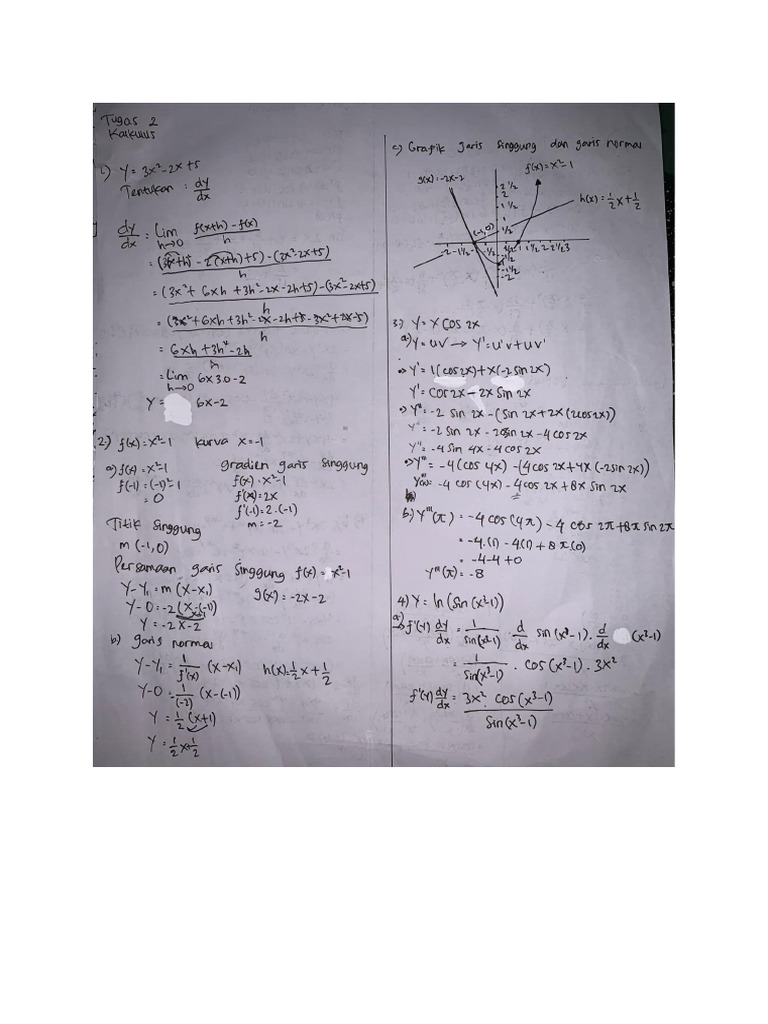 Tugas 2
Kalkulus
1.) Y = 3x² - 2x + 5
Tentukan : dy/dx
dy/dx = Lim h→0 f(x+h) - f(x) / h
= (3x²+h) - 2(x+h)+5) - (3x²-2x+5) / h
= (3x² + 6xh + 3h² - 2x - 2h + 5) - (3x² - 2x + 5) / h
= (3x² + 6xh + 3h² - 2x - 2h + 5 - 3x² + 2x - 5) / h
= 6xh + 3h² - 2h / h
= Lim h→0 6x 3.0 - 2
Y = 6x - 2
2.) f(x) = x² - 1 kurva x = -1
a) f(x) = x² - 1
f(-1) = (-1)² - 1
= 0
gradien garis singgung
f(x) = x² - 1
f'(x) = 2x
f'(-1) = 2 . (-1)
m = -2
Titik singgung
m (-1, 0)
Persamaan garis singgung f(x) = x² - 1
Y - Y₁ = m (x - x₁)
g(x) = -2x - 2
Y - 0 = -2 (x - (-1))
x+1
Y = -2x - 2
b) garis normal
Y - Y₁ = 1/f'(x) (x - x₁)
h(x) = 1/2 x + 1/2
Y - 0 = 1/(-2) (x - (-1))
Y = 1/2 (x+1)
Y = 1/2 x + 1/2
c) Grafik garis singgung dan garis normal
g(x) = -2x - 2
f(x) = x² - 1
h(x) = 1/2 x + 1/2
(-1, 0)
2 1/2
2
1 1/2
1
1/2
-2 -1 1/2 -1/2 1/2 1 1 1/2 2 2 1/2 3
-1
-1 1/2
-2
3.) Y = x cos 2x
a) Y = uv → Y' = u'v + uv'
Y' = 1 (cos 2x) + x (-2 sin 2x)
Y' = cos 2x - 2x sin 2x
Y'' = -2 sin 2x - (sin 2x + 2x (2cos 2x))
Y'' = -2 sin 2x - 2 sin 2x - 4 cos 2x
Y'' = -4 sin 4x - 4 cos 2x
Y''' = -4 (cos 4x) - (4 cos 2x + 4x (-2 sin 2x))
Y''' = -4 cos (4x) - 4 cos 2x + 8x sin 2x
b.) Y'''(π) = -4 cos (4π) - 4 cos 2π + 8π sin 2π
= -4.(1) - 4(1) + 8π(0)
= -4 - 4 + 0
Y'''(π) = -8
4) Y = ln (sin (x³-1))
a) f'(Y) dy/dx = 1/sin(x³-1) . d/dx sin (x³-1) . d/dx (x³-1)
= 1/sin(x³-1) . cos (x³-1) . 3x²
f'(Y) dy/dx = 3x² cos (x³-1) / sin (x³-1)